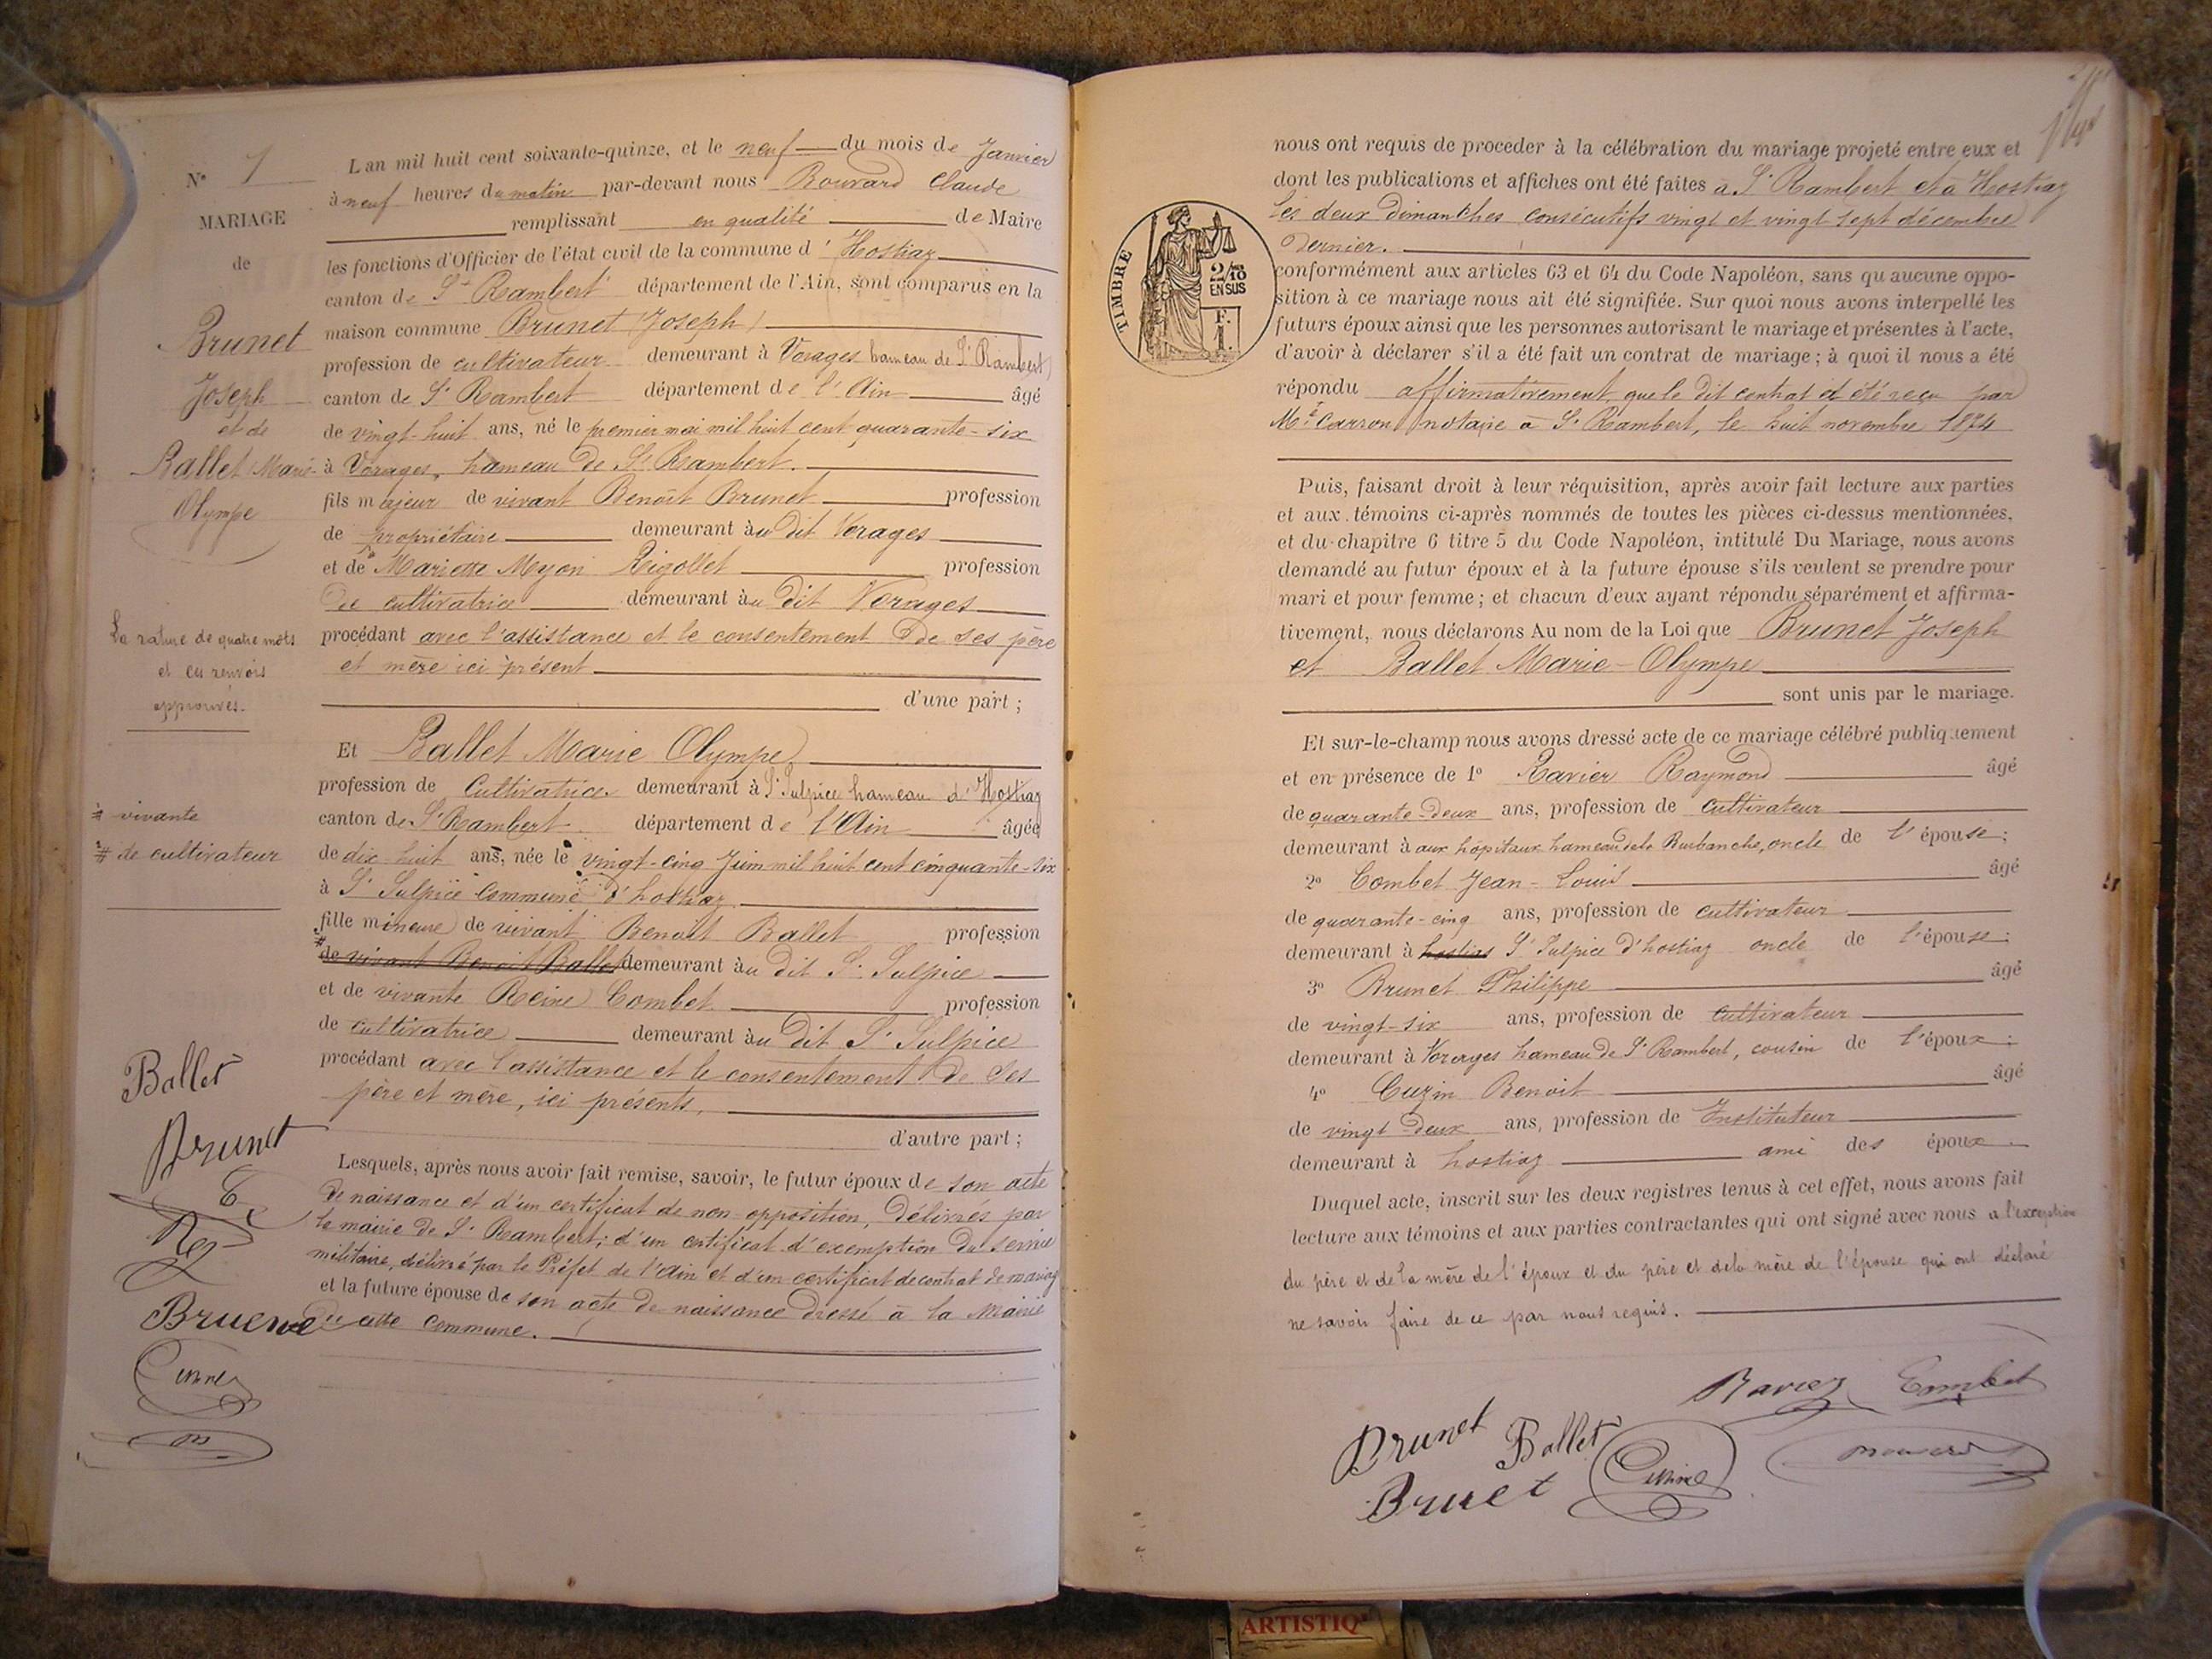 N° 1
MARIAGE
de
Brunet
Joseph
et de
Ballet Marie
Olympe
La rature de quatre mots
et en renvois
approuvés.
# vivante
# de cultivateur
Ballet
Brunet
L'an mil huit cent soixante-quinze, et le neuf du mois de Janvier
à neuf heures du matin par-devant nous Bouvard Claude
remplissant en qualité de Maire
les fonctions d'Officier de l'état civil de la commune d'Hostiaz
canton de St Rambert département de l'Ain, sont comparus en la
maison commune Brunet (Joseph)
profession de cultivateur demeurant à Vorages hameau de St Rambert
canton de St Rambert département de l'Ain âgé
de vingt-huit ans, né le premier mai mil huit cent quarante-six
à Vorages, hameau de St Rambert.
fils majeur de vivant Benoît Brunet profession
de propriétaire demeurant àu dit Vorages
et de Mariette Myon Rigollet profession
de cultivatrice demeurant àu dit Vorages
procédant avec l'assistance et le consentement de ses père
et mère ici présent
d'une part ;
Et Ballet Marie Olympe
profession de Cultivatrice demeurant à St Sulpice hameau d'Hostiaz
canton de St Rambert département de l'Ain âgée
de dix-huit ans, née le vingt-cinq Juin mil huit cent cinquante-six
à St Sulpice commune d'hostiaz
fille mineure de vivant Benoit Ballet profession
# de vivant Benoit Ballet demeurant àu dit St Sulpice
et de vivante Reine Combet profession
de cultivatrice demeurant àu dit St Sulpice
procédant avec l'assistance et le consentement de ses
père et mère, ici présents,
d'autre part ;
Lesquels, après nous avoir fait remise, savoir, le futur époux de son acte
de naissance et d'un certificat de non-opposition, délivrés par
la mairie de St Rambert; d'un certificat d'exemption du service
militaire, délivré par le Préfet de l'Ain et d'un certificat de contrat de mariage
et la future épouse de son acte de naissance dressé à la Mairie
de cette commune.
nous ont requis de procéder à la célébration du mariage projeté entre eux et
dont les publications et affiches ont été faites à St Rambert et à Hostiaz
les deux dimanches consécutifs vingt et vingt sept décembre
dernier.
TIMBRE
2/10
EN SUS
F.
1.
conformément aux articles 63 et 64 du Code Napoléon, sans qu'aucune oppo-
sition à ce mariage nous ait été signifiée. Sur quoi nous avons interpellé les
futurs époux ainsi que les personnes autorisant le mariage et présentes à l'acte,
d'avoir à déclarer s'il a été fait un contrat de mariage ; à quoi il nous a été
répondu affirmativement, que le dit contrat a été reçu par
Mt Carron notaire à St Rambert, le huit novembre 1874
Puis, faisant droit à leur réquisition, après avoir fait lecture aux parties
et aux témoins ci-après nommés de toutes les pièces ci-dessus mentionnées,
et du chapitre 6 titre 5 du Code Napoléon, intitulé Du Mariage, nous avons
demandé au futur époux et à la future épouse s'ils veulent se prendre pour
mari et pour femme ; et chacun d'eux ayant répondu séparément et affirma-
tivement, nous déclarons Au nom de la Loi que Brunet Joseph
et Ballet Marie-Olympe
sont unis par le mariage.
Et sur-le-champ nous avons dressé acte de ce mariage célébré publiquement
et en présence de 1° Ravier Raymond âgé
de quarante-deux ans, profession de cultivateur
demeurant à aux hopitaux hameau de la Burbanche, oncle de l'épouse ;
2° Combet Jean-Louis âgé
de quarante-cinq ans, profession de cultivateur
demeurant à hostias St Sulpice d'hostiaz oncle de l'épouse ;
3° Brunet Philippe âgé
de vingt-six ans, profession de cultivateur
demeurant à Vorages hameau de St Rambert, cousin de l'époux ;
4° Cuzin Benoit âgé
de vingt-deux ans, profession de Instituteur
demeurant à hostiaz ami des époux.
Duquel acte, inscrit sur les deux registres tenus à cet effet, nous avons fait
lecture aux témoins et aux parties contractantes qui ont signé avec nous à l'exception
du père et de la mère de l'époux et du père et de la mère de l'épouse qui ont déclaré
ne savoir faire de ce par nous requis.
Ravier Combet
Brunet Ballet
Bruet
ARTISTIQ